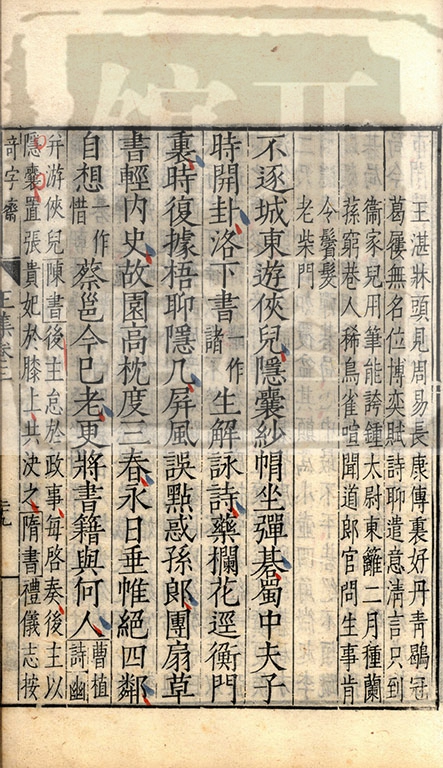 王湛牀頭見周易長康傳裏好丹青鶡冠
葛屨無名位博奕賦詩聊遣意清言只到
衞家兒用筆能誇鍾太尉東籬二月種蘭
蓀窮巷人稀鳥雀喧聞道郎官問生事肯
令鬢髮
老柴門
不逐城東遊俠兒隱囊紗帽坐彈碁蜀中夫子
時開卦洛下書一作諸生解詠詩藥欄花逕衡門
裏時復據梧聊隱几屏風誤點惑孫郎團扇草
書輕內史故園高枕度三春永日垂帷絕四鄰
自想一作惜蔡邕今已老更將書籍與何人曹植詩幽
并游俠兒陳書後主怠於政事每啓奏後主以
隱囊置張貴妃於膝上共決之隋書禮儀志按
奇字齋
王集卷三